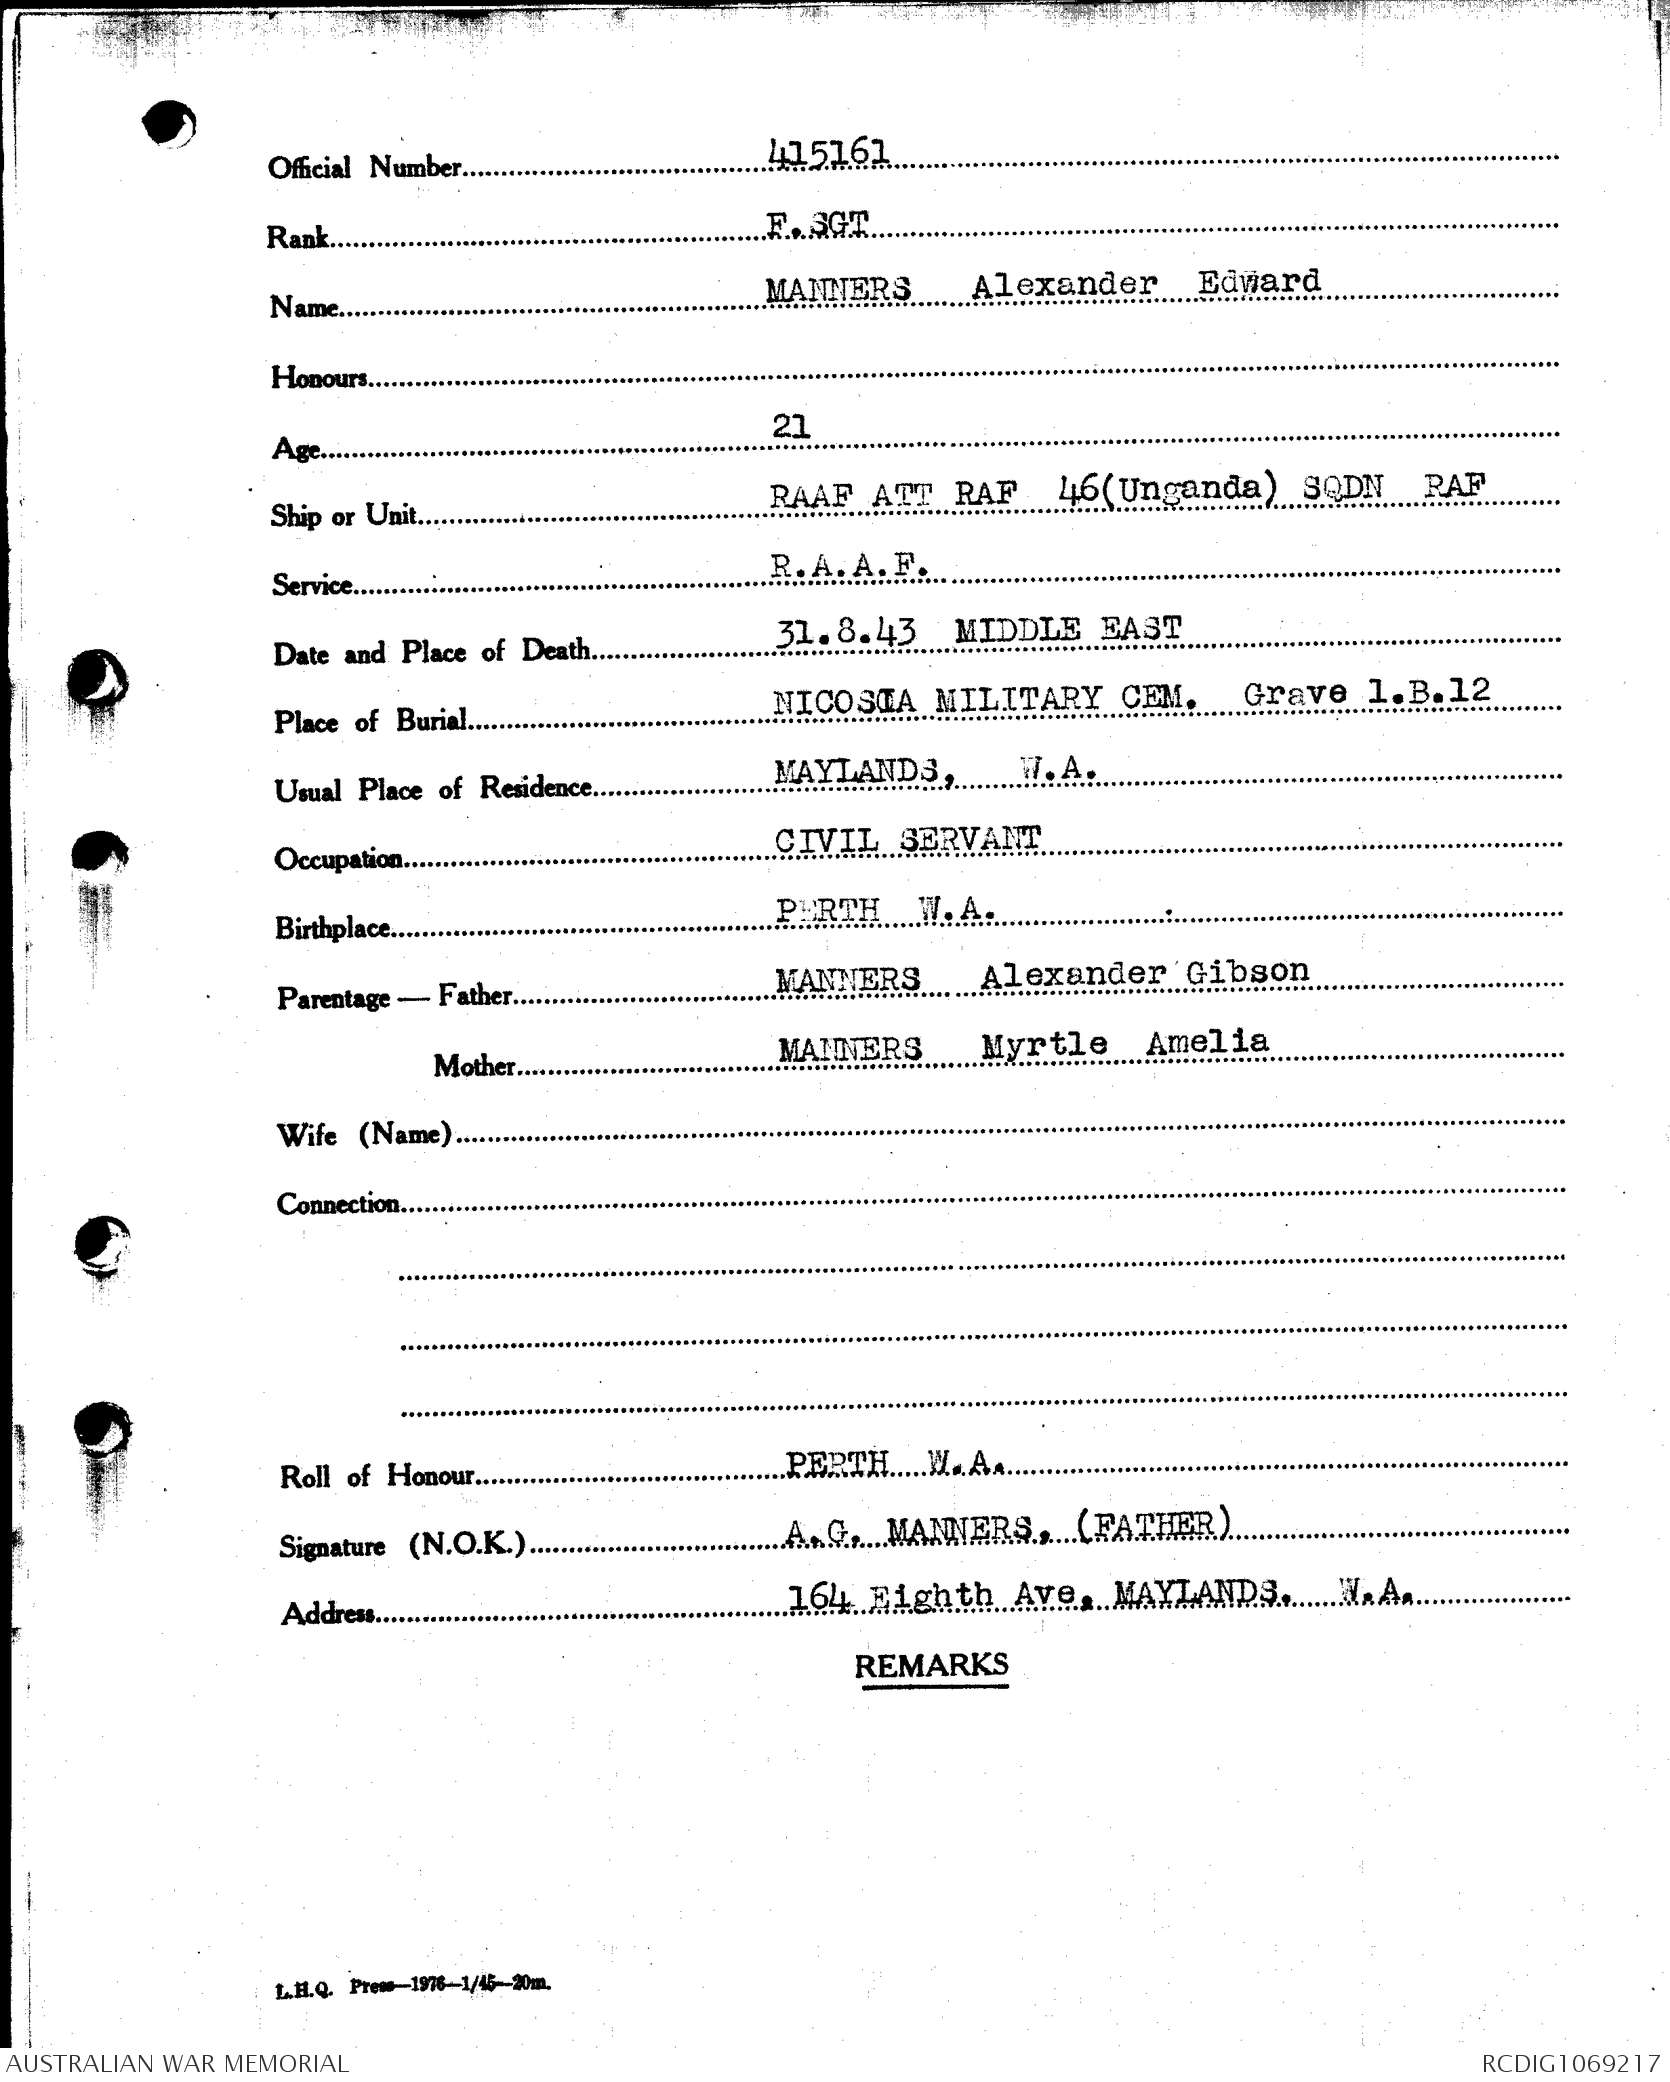 Official Number 415161
Rank F.SGT
Name MANNERS Alexander Edward
Honours
Age 21
Ship or Unit RAAF ATT RAF 46(Unganda) SQDN RAF
Service R.A.A.F.
Date and Place of Death 31.8.43 MIDDLE EAST
Place of Burial NICOSIA MILITARY CEM. Grave 1.B.12
Usual Place of Residence MAYLANDS, W.A.
Occupation CIVIL SERVANT
Birthplace PERTH W.A.
Parentage — Father MANNERS Alexander Gibson
Mother MANNERS Myrtle Amelia
Wife (Name)
Connection
Roll of Honour PERTH W.A.
Signature (N.O.K.) A.G. MANNERS, (FATHER)
Address 164 Eighth Ave, MAYLANDS. W.A.
REMARKS
L.H.Q. Press—1976—1/45—20m.
AUSTRALIAN WAR MEMORIAL RCDIG1069217